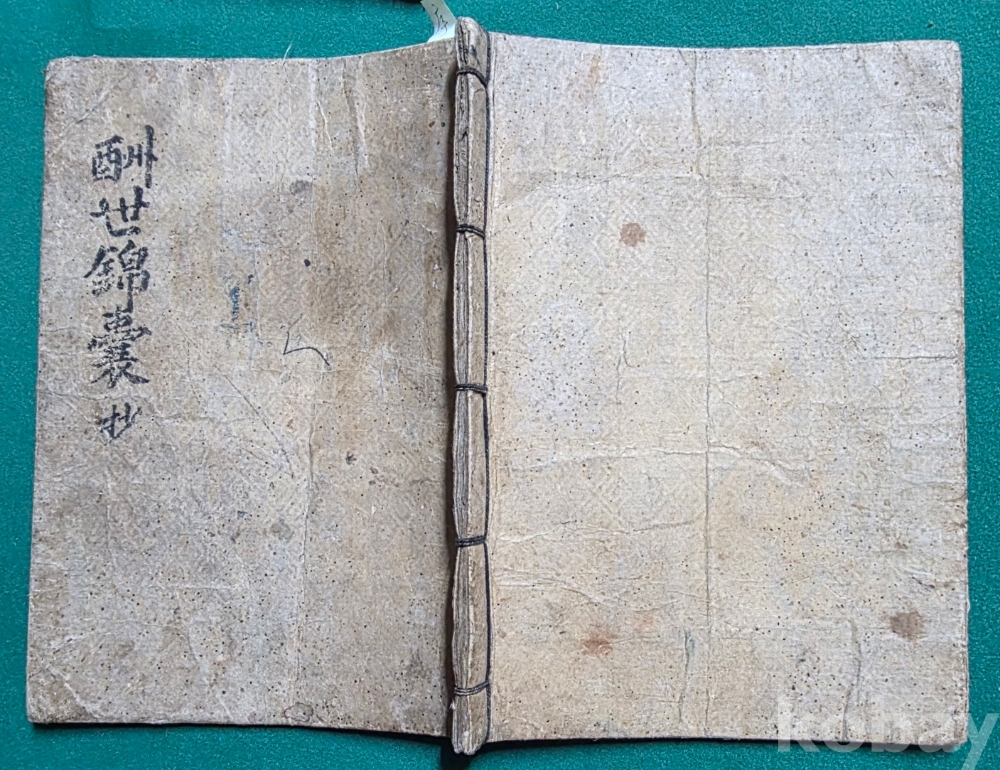 酬世錦囊 抄
kobay